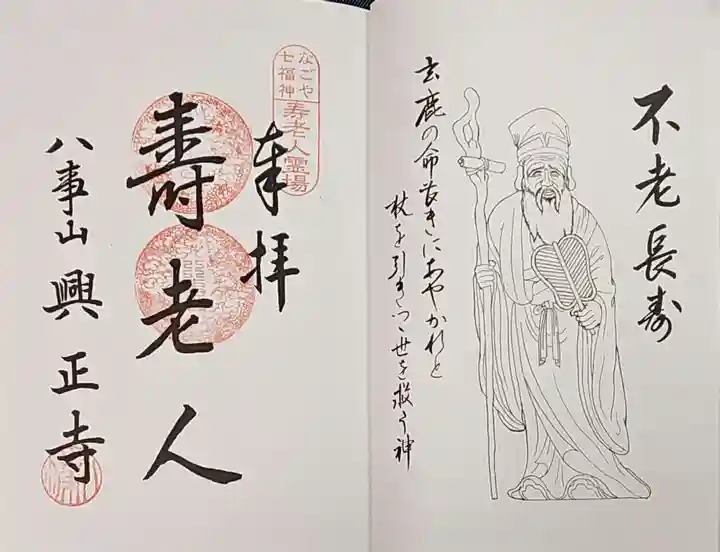 不老長寿
玄鹿の命長きにあやかれと
杖を引きつゝ世を救う神
なごや
七福神
寿老人霊場
奉拝
壽老人
八事山 興正寺